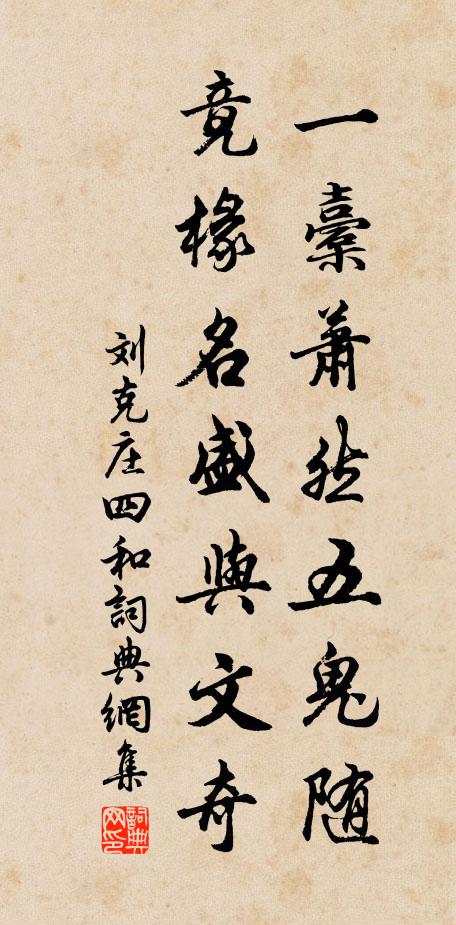 一橐萧然五鬼随
竟椽名盛與文奇
刘克庄四和詞典網集
詞典网印